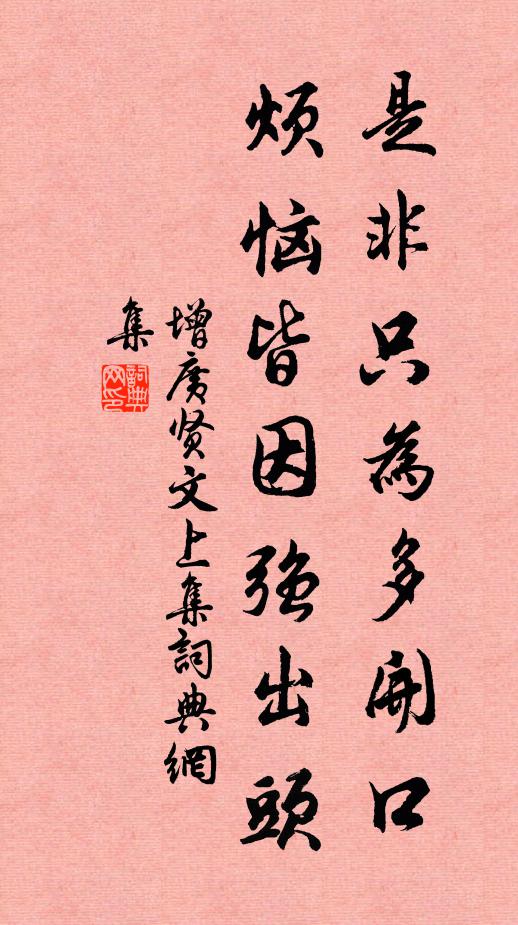 是非只為多開口
煩惱皆因強出頭
增廣賢文上集詞典網
集
詞典
网印